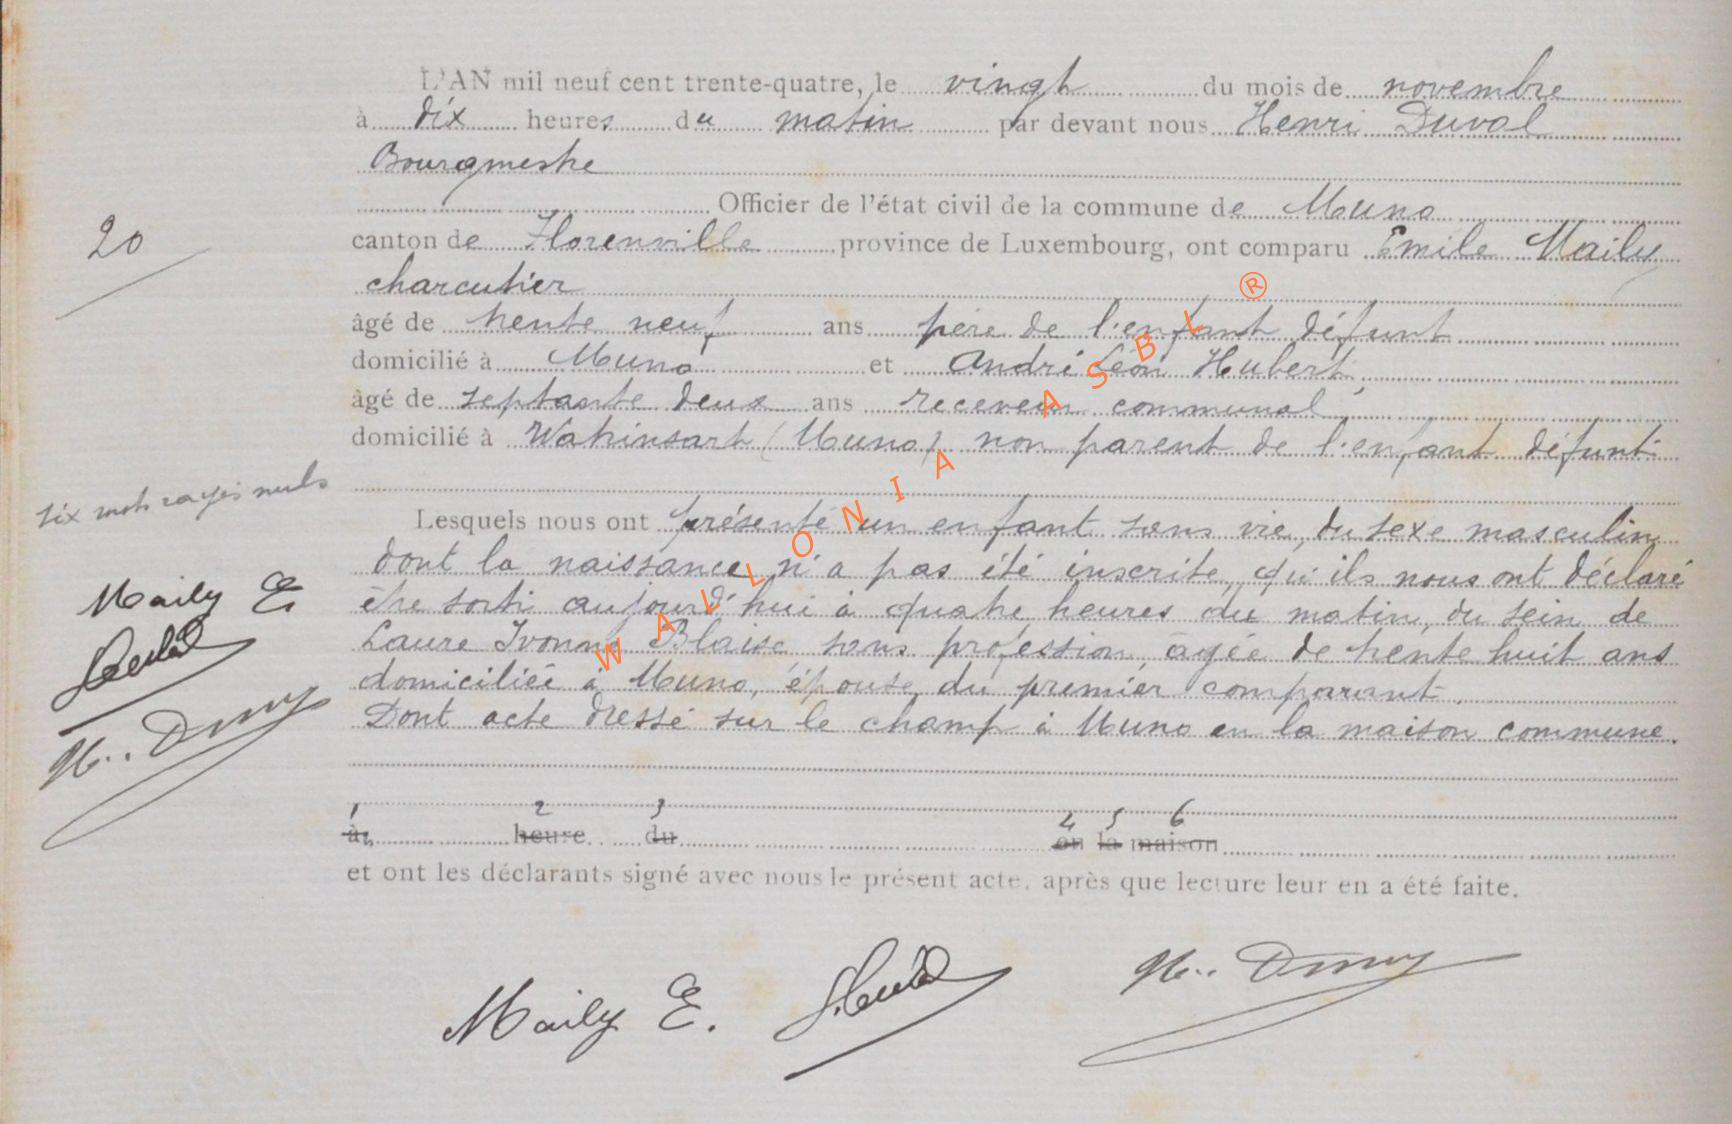 L'AN mil neuf cent trente-quatre, le vingt du mois de novembre
à dix heures du matin par devant nous Henri Duval
Bourgmestre
Officier de l'état civil de la commune de Muno
20
canton de Florenville province de Luxembourg, ont comparu Emile Maily
charcutier
âgé de trente neuf ans père de l'enfant défunt
domicilié à Muno et André Léon Hubert
âgé de septante deux ans receveur communal,
domicilié à Watrinsart (Muno) non parent de l'enfant défunt
six mots rayés nuls
Lesquels nous ont présenté un enfant sans vie, du sexe masculin
dont la naissance n'a pas été inscrite, qu'ils nous ont déclaré
Maily E.
être sorti aujourd'hui à quatre heures du matin, du sein de
Hubert
Laure Ivonne Blaise sans profession, âgée de trente huit ans
domiciliée à Muno, épouse du premier comparant.
H. Duval
Dont acte dressé sur le champ à Muno en la maison commune.
1 2 3 4 5 6
à heure du en la maison
et ont les déclarants signé avec nous le présent acte, après que lecture leur en a été faite.
Maily E. Hubert H. Duval
WALLONIA ASBL ®